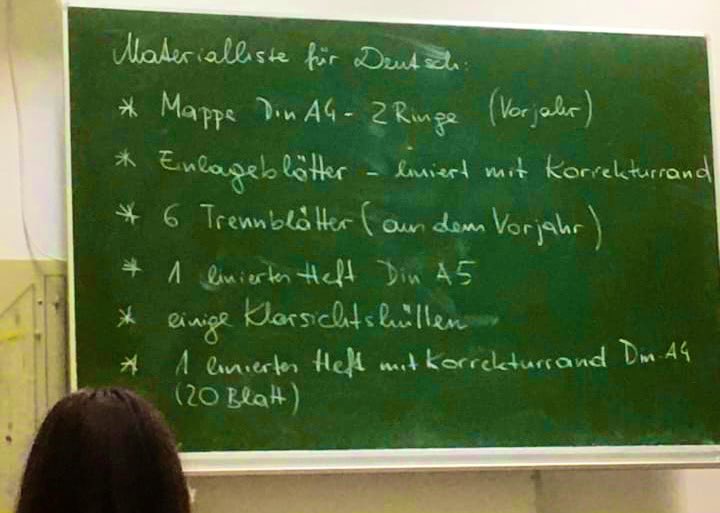 Materialliste für Deutsch:
* Mappe Din A4 - 2 Ringe (Vorjahr)
* Einlageblätter - liniert mit Korrekturrand
* 6 Trennblätter (aus dem Vorjahr)
* 1 liniertes Heft Din A5
* einige Klarsichtshüllen
* 1 liniertes Heft mit Korrekturrand Din-A4
(20 Blatt)